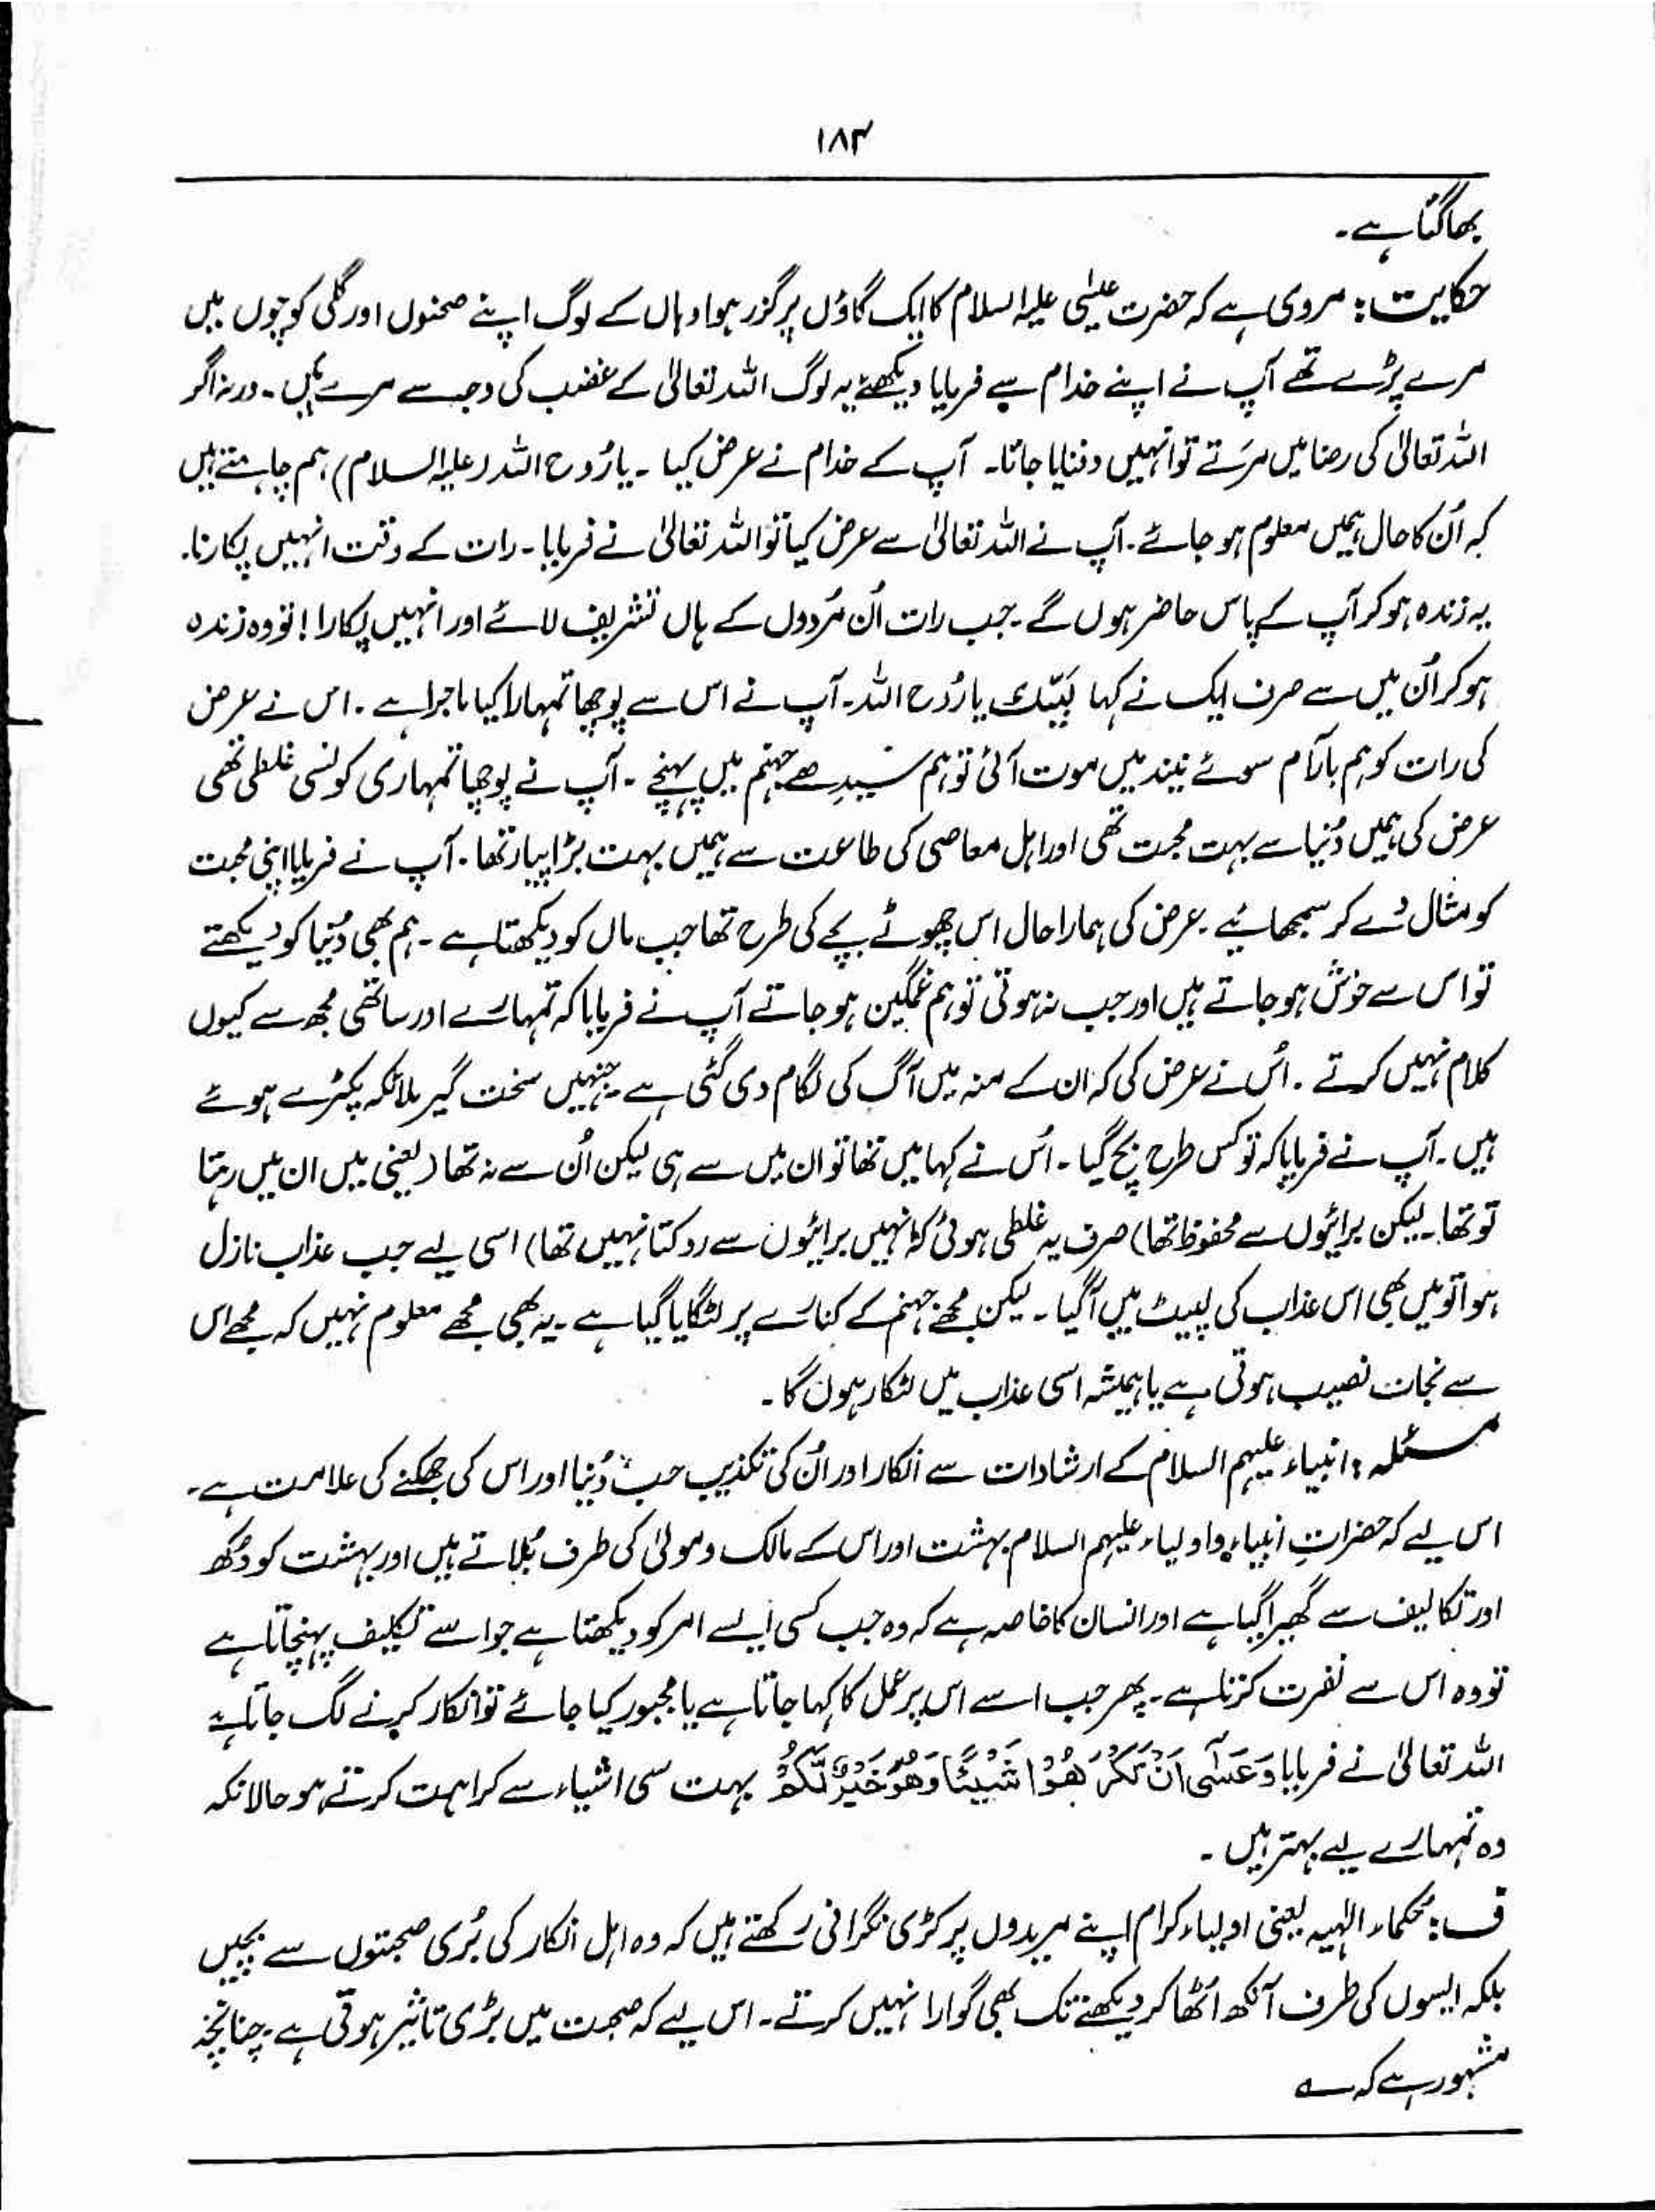 ۱۸۴
بھاگتا ہے۔
حکایت: مروی ہے کہ حضرت عیسٰی علیہ السلام کا ایک گاؤں پر گزر ہوا وہاں کے لوگ اپنے صحنوں اور گلی کوچوں میں
مرے پڑے تھے آپ نے اپنے خدام سے فرمایا دیکھئے یہ لوگ اللہ تعالیٰ کے غضب کی وجہ سے مرے ہیں۔ ورنہ اگر
اللہ تعالیٰ کی رضا میں مرَتے تو انہیں دفنایا جاتا۔ آپ کے خدام نے عرض کیا۔ یا رُوح اللہ (علیہ السلام) ہم چاہتے ہیں
کہ اُن کا حال ہمیں معلوم ہو جائے۔ آپ نے اللہ تعالیٰ سے عرض کیا تو اللہ تعالیٰ نے فرمایا۔ رات کے وقت انہیں پکارنا۔
یہ زندہ ہو کر آپ کے پاس حاضر ہوں گے۔ جب رات اُن مُردوں کے ہاں تشریف لائے اور انہیں پکارا! تو وہ زندہ
ہو کر اُن میں سے صرف ایک نے کہا لَبَّیک یا رُوح اللہ۔ آپ نے اس سے پوچھا تمہارا کیا ماجرا ہے۔ اس نے عرض
کی رات کو ہم بآرام سوئے نیند میں موت آئی تو ہم سیدھے جہنم میں پہنچے۔ آپ نے پوچھا تمہاری کونسی غلطی تھی
عرض کی ہمیں دُنیا سے بہت محبت تھی اور اہل معاصی کی طاعت سے ہمیں بہت بڑا پیار تھا۔ آپ نے فرمایا اپنی محبت
کو مثال دے کر سمجھائیے۔ عرض کی ہمارا حال اس چھوٹے بچے کی طرح تھا جب ماں کو دیکھتا ہے۔ ہم بھی دُنیا کو دیکھتے
تو اس سے خوش ہو جاتے ہیں اور جب نہ ہوتی تو ہم غمگین ہو جاتے آپ نے فرمایا کہ تمہارے اور ساتھی مجھ سے کیوں
کلام نہیں کرتے۔ اُس نے عرض کی کہ ان کے منہ میں آگ کی لگام دی گئی ہے جنہیں سخت گیر ملائکہ پکڑے ہوئے
ہیں۔ آپ نے فرمایا کہ تو کس طرح بچ گیا۔ اُس نے کہا میں تھا تو ان میں سے ہی لیکن اُن سے نہ تھا (یعنی میں ان میں رہتا
تو تھا۔ لیکن برائیوں سے محفوظ تھا) صرف یہ غلطی ہوئی کہ انہیں برائیوں سے روکتا نہیں تھا) اسی لیے جب عذاب نازل
ہوا تو میں بھی اس عذاب کی لپیٹ میں آگیا۔ لیکن مجھے جہنم کے کنارے پر لٹکایا گیا ہے۔ یہ بھی مجھے معلوم نہیں کہ مجھے اس
سے نجات نصیب ہوتی ہے یا ہمیشہ اسی عذاب میں لٹکا رہوں گا۔
مسئلہ: انبیاء علیہم السلام کے ارشادات سے انکار اور اُن کی تکذیب حب دُنیا اور اس کی جھکنے کی علامت ہے۔
اس لیے کہ حضراتِ انبیاء و اولیاء علیہم السلام بہشت اور اس کے مالک و مولیٰ کی طرف بُلاتے ہیں اور بہشت کو دُکھ
اور تکالیف سے گھیرا گیا ہے اور انسان کا خاصہ ہے کہ وہ جب کسی ایسے امر کو دیکھتا ہے جو اسے تکلیف پہنچاتا ہے
تو وہ اس سے نفرت کرتا ہے۔ پھر جب اسے اس پر عمل کا کہا جاتا ہے یا مجبور کیا جائے تو انکار کرنے لگ جاتا ہے
اللہ تعالیٰ نے فرمایا وَعَسٰٓی اَنْ تَکْرَھُوْا شَیْئًا وَّھُوَ خَیْرٌ لَّکُمْ بہت سی اشیاء سے کراہت کرتے ہو حالانکہ
وہ تمہارے لیے بہتر ہیں۔
ف: حُکماء الٰہیہ یعنی اولیاء کرام اپنے مریدوں پر کڑی نگرانی رکھتے ہیں کہ وہ اہل انکار کی بُری صحبتوں سے بچیں
بلکہ ایسوں کی طرف آنکھ اُٹھا کر دیکھنے تک بھی گوارا نہیں کرتے۔ اس لیے کہ صحبت میں بڑی تاثیر ہوتی ہے۔ چنانچہ
مشہور ہے کہ ؎